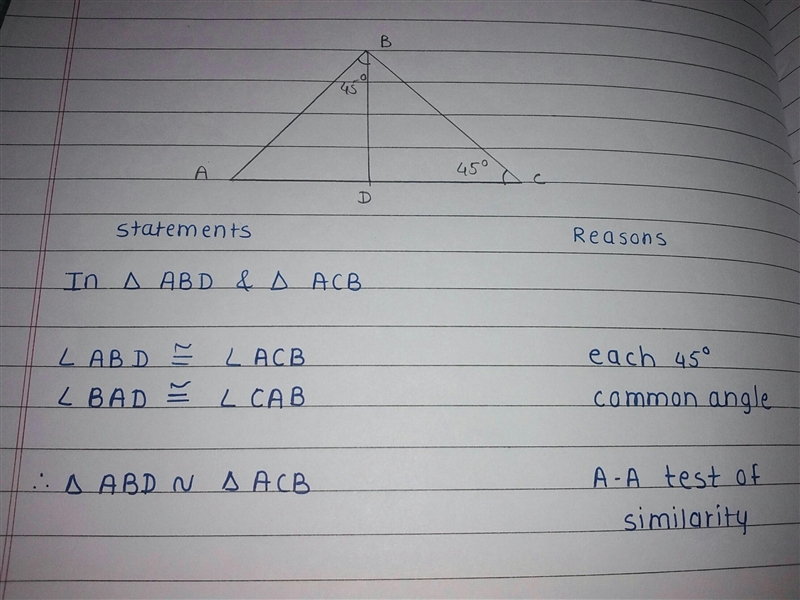 B
45°
A
45°
C
D
statements Reasons
In Δ ABD & Δ ACB
∠ ABD ≅ ∠ ACB each 45°
∠ BAD ≅ ∠ CAB common angle
∴ Δ ABD ~ Δ ACB A-A test of
similarity